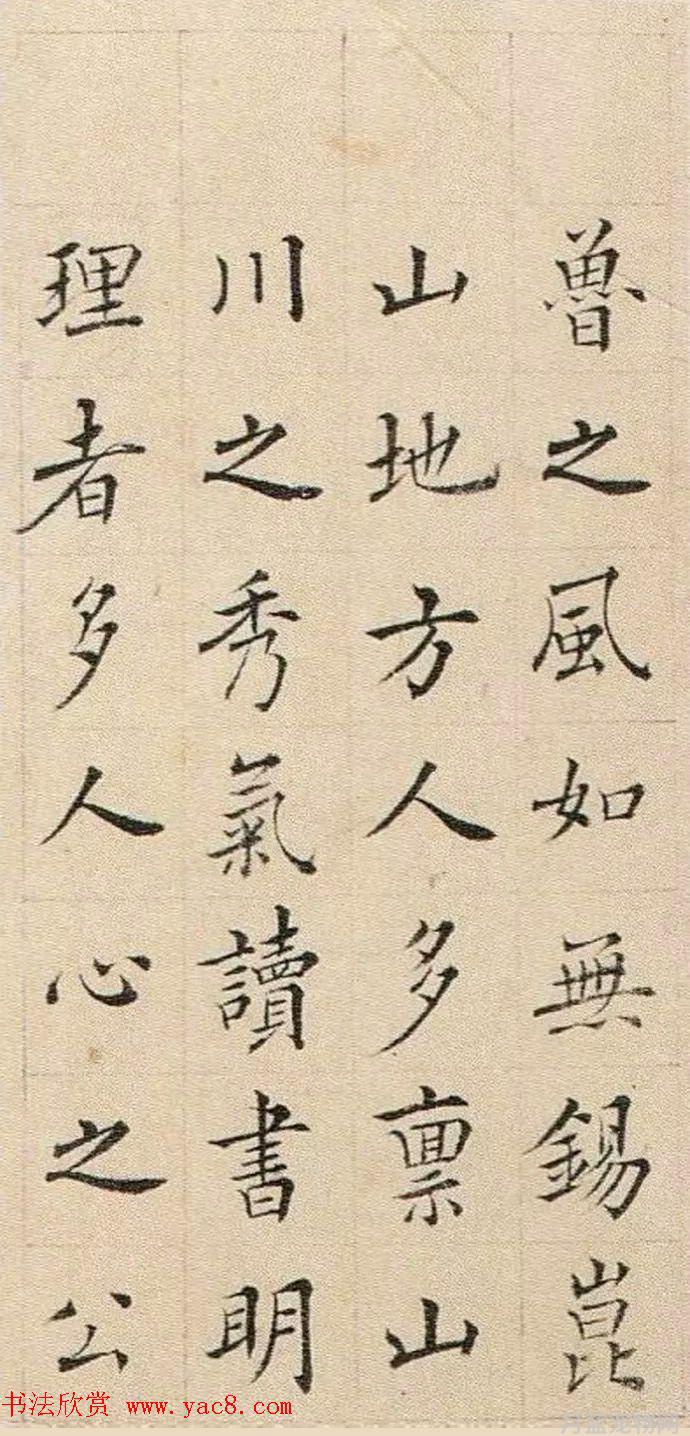 魯之風如無錫崑
山地方人多禀山
川之秀氣讀書明
理者多人心之公
书法欣赏 www.yac8.com